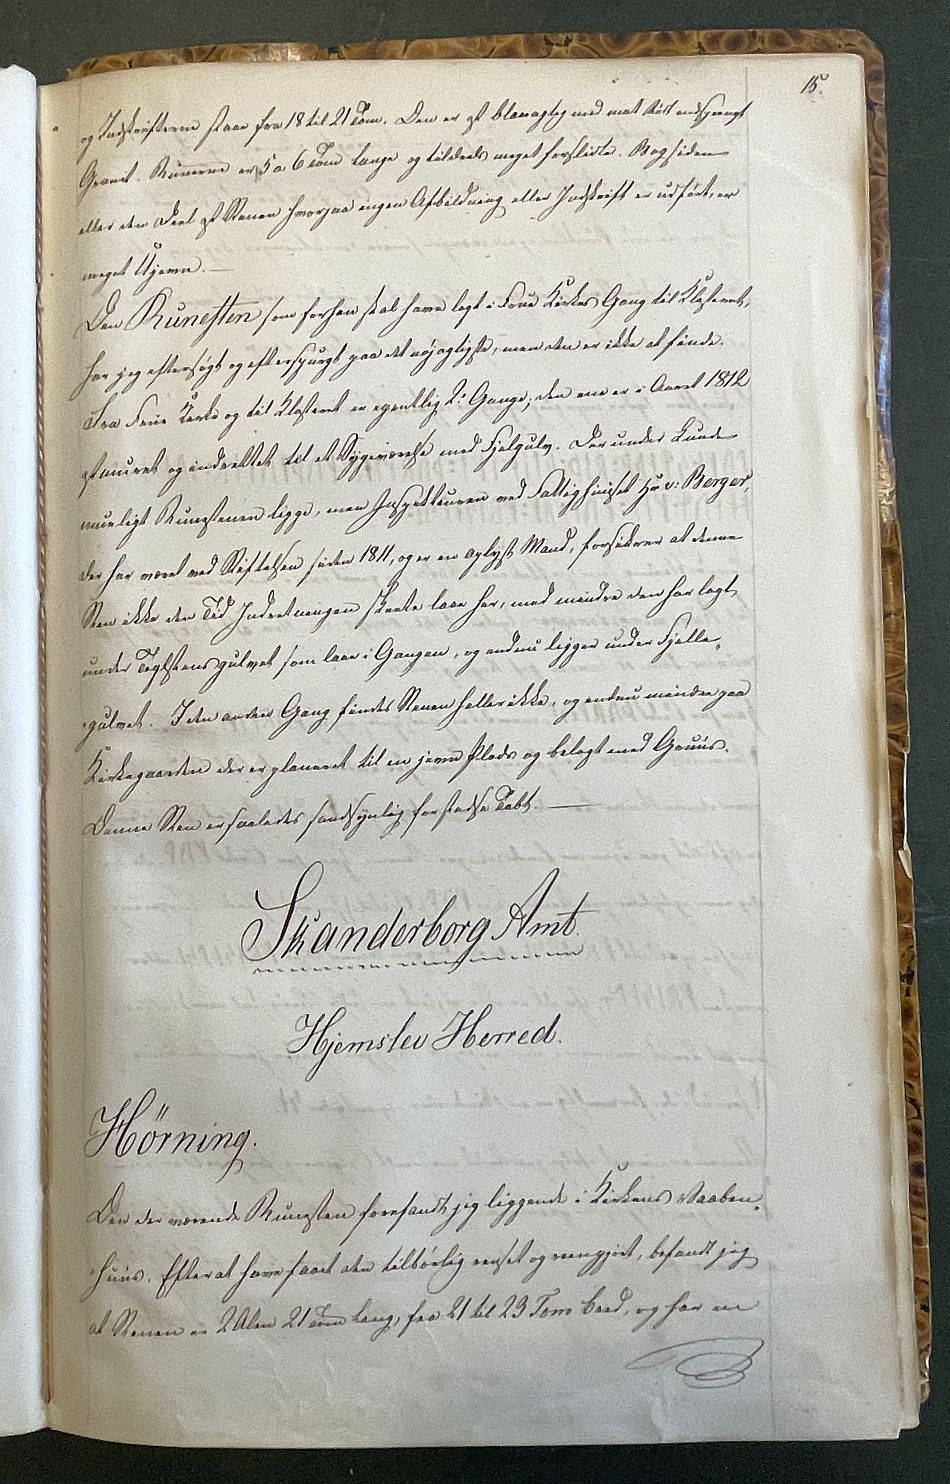 15.
og Indskrifterne staae fra 18 til 21 Tom. Den er af blaaagtig med mat Rödt indsprengt
Granit. Runerne er 5 a 6 Tom lange og tildeels meget forslidte. Bagsiden
eller den Deel af Stenen hvorpaa ingen Afbildning eller Indskrift er udført, er
meget Ujevn. —
Den Runesten som forhen skal have lagt i Frue Kirkes Gang til Klosteret,
har jeg eftersøgt og efterspurgt paa det nøjagtigste, men den er ikke at finde.
Fra Frue Kirke og til Klosteret er egentlig 2: Gange, den ene er i Aaret 1812
afmuret og indrettet til et Sygeværelse med Fjelgulv. Der under kunde
mueligt Runestenen ligge, men Inspekteuren ved Fattighuset Hr v: Berger,
der har været ved Stiftelsen siden 1811, og er en oplyst Mand, forsikrer at denne
Sten ikke den Tid Indretningen skeete laae her, med mindre den har lagt
under Teglstensgulvet som laae i Gangen, og endnu ligger under Fjelle-
gulvet. I den anden Gang findes Stenen heller ikke, og endnu mindre paa
Kirkegaarden der er planeret til en jevn Plads og belagt med Gruus.
Denne Sten er saaledes sandsynlig for stedse Tabt. —
Skanderborg Amt.
Hjemslev Herred.
Hörning.
Den der værende Runesten forefandt jeg liggende i Kirkens Vaaben-
huus. Efter at have faaet den tilbörlig renset og rengjort, befandt jeg
at Stenen er 2 Alen 21 Tom lang, fra 21 til 23 Tom bred, og har en